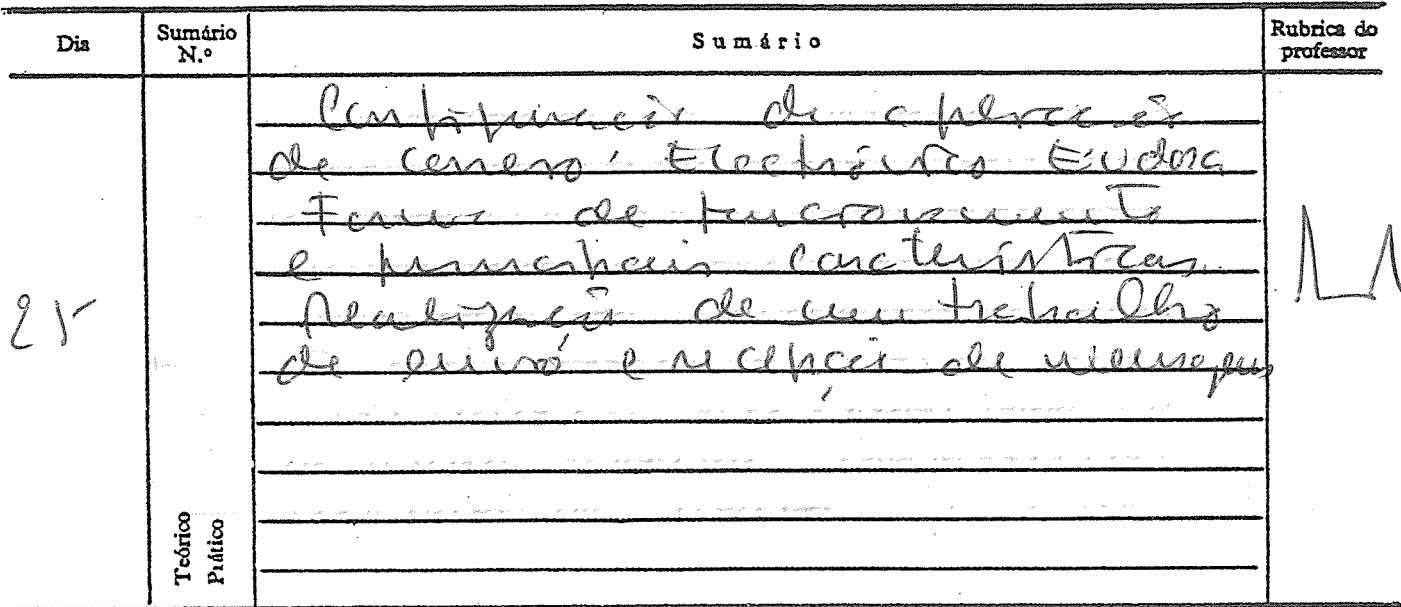 Dia
Sumário N.º
Sumário
Rubrica do professor
25
Configuração de aplicação
de correio Electrónico Eudora
Forma de funcionamento
e principais características
Realização de um trabalho
de envio e recepção de mensagens
Teórico
Prático